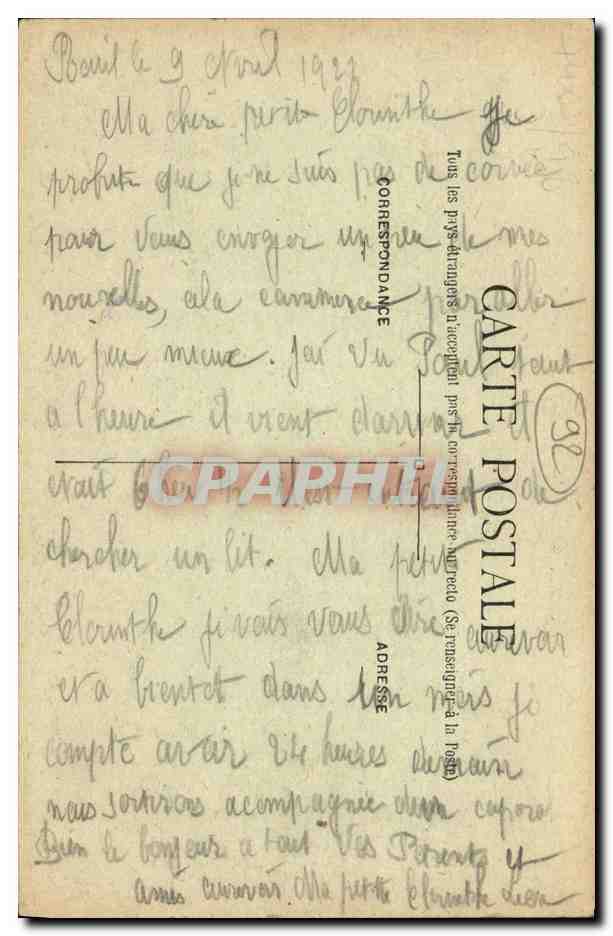 le 9 Avril 1921
Ma chère petite Clorinthe Je
profite que je ne suis pas de corvée
pour vous envoyer un peu de mes
nouvelles, cela commence par aller
un peu mieux. J'ai vu Paul tout
a l'heure il vient d'arriver il
était chez
chercher un lit. Ma petite
Clorinthe je vais vous dire aurevoir
et a bientot dans un mois je
compte avoir 24 heures demain
nous sortirons acompagnée d'un caporal
Bien le bonjour a tout Vos Parents et
amis aurevoir Ma petite Clorinthe Léon
CARTE POSTALE
Tous les pays étrangers n'acceptent pas la correspondance au recto (Se renseigner à la Poste)
CORRESPONDANCE
ADRESSE
92
CPAPHIL